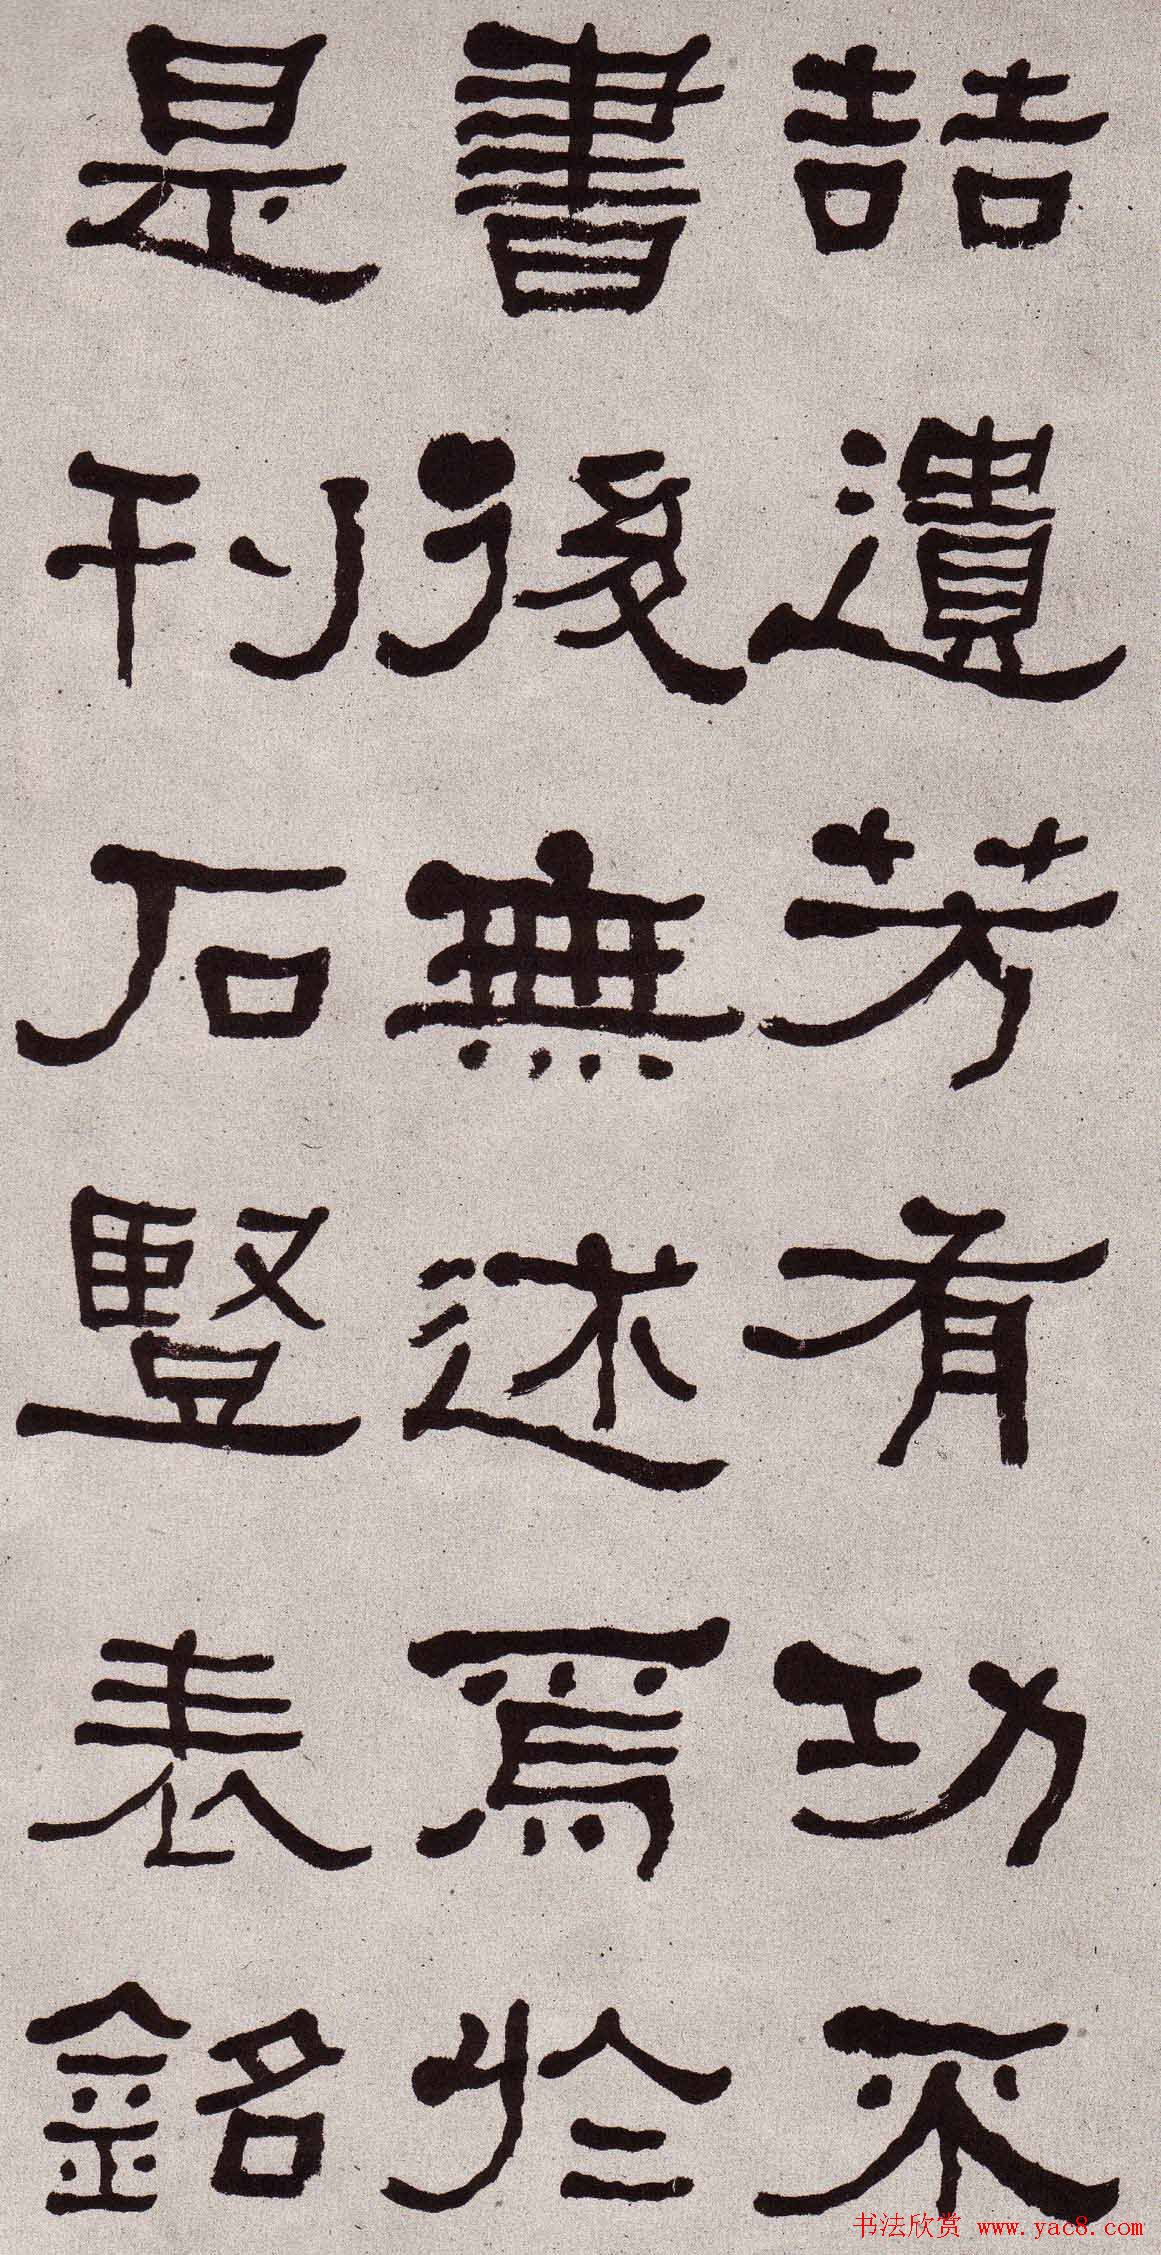 喆遺芳有功不
書後無述焉於
是刊石豎表銘
书法欣赏 www.yac8.com